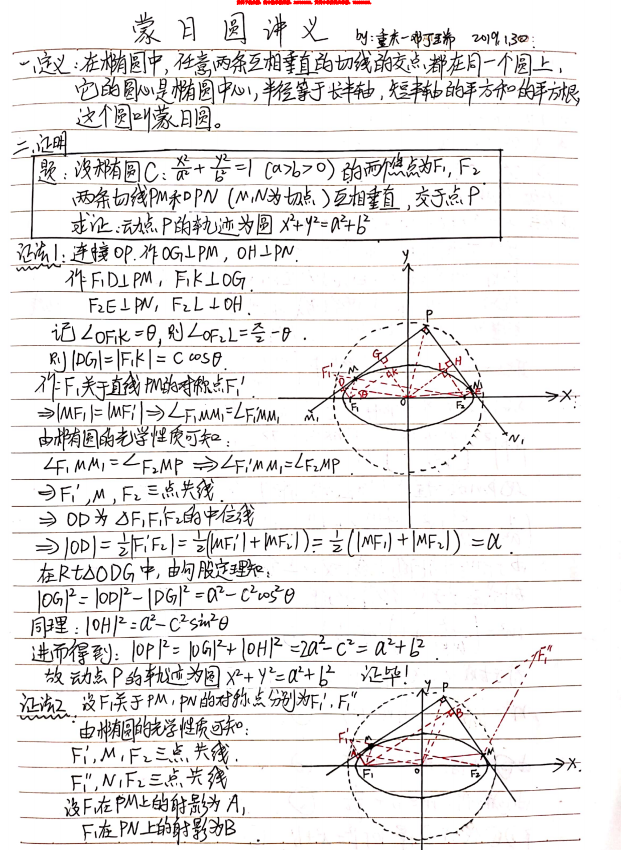 蒙日圆讲义 by:重来一邓丁玉帝 2019.1.30.
一.定义:在椭圆中,任意两条互相垂直的切线的交点,都在同一个圆上,
它的圆心是椭圆中心,半径等于长半轴,短半轴的平方和的平方根
这个圆叫蒙日圆。
二.证明
题:设椭圆C: x²/a² + y²/b² =1 (a>b>0) 的两个焦点为F₁,F₂
两条切线PM和PN (M,N为切点) 互相垂直,交于点P.
求证:动点P的轨迹为圆 x²+y²=a²+b²
证法1:连接OP.作OG⊥PM, OH⊥PN.
作F₁D⊥PM, F₁K⊥OG
F₂E⊥PN, F₂L⊥OH.
记∠OF₁K=θ,则∠OF₂L=π/2-θ.
则|DG|=|F₁K|=c cosθ.
作F₁关于直线PM的对称点F₁'
⇒|MF₁|=|MF₁'|⇒∠F₁MM₁=∠F₁'MM₁
由椭圆的光学性质可知:
∠F₁MM₁=∠F₂MP ⇒∠F₁'MM₁=∠F₂MP
⇒F₁',M,F₂三点共线.
⇒ OD为△F₁F₁'F₂的中位线
⇒|OD|=½|F₁'F₂|=½(|MF₁'|+|MF₂|)=½(|MF₁|+|MF₂|)=a.
在Rt△ODG中,由勾股定理知:
|OG|²=|OD|²-|DG|²=a²-c²cos²θ
同理:|OH|²=a²-c²sin²θ
进而得到:|OP|²=|OG|²+|OH|²=2a²-c²=a²+b².
故动点P的轨迹为圆x²+y²=a²+b² 证毕!
证法2. 设F₁关于PM,PN的对称点分别为F₁',F₁''
由椭圆的光学性质可知:
F₁',M,F₂三点共线.
F₁'',N,F₂三点共线
设F₁在PM上的射影为A,
F₁在PN上的射影为B
y
P
G
H
F₁'
M
D
K
L
N
E
θ
F₁
O
F₂
X
M₁
N₁
y
P
F₁''
B
F₁'
M
A
N
F₁
O
F₂
X